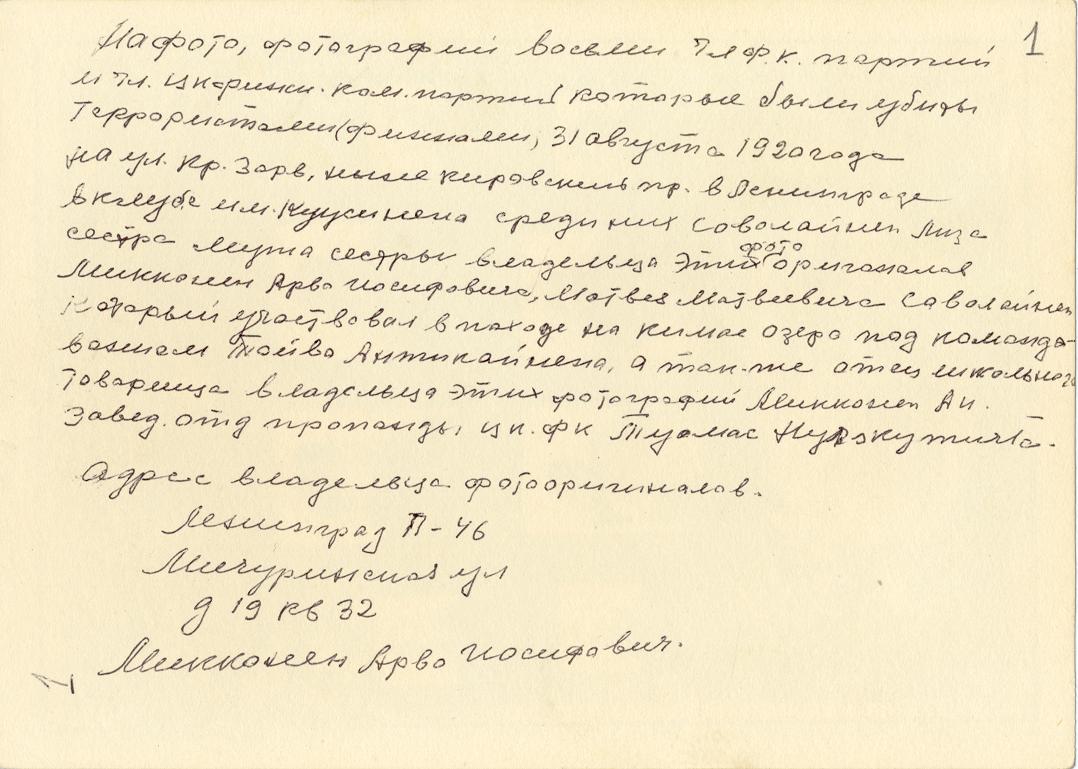 1
На фото, фотографии восьми чл ф.к. партии
и чл. цк финки. ком. партии которые были убиты
Террористами (финнами, 31 августа 1920 года
на ул. Кр. Зорь, ныне кировский пр. в Ленинграде
в клубе им. Куусинена среди них Соволайнен Лиза
сестра мужа сестры владельца этих фото оригоналов
Микконен Арво Иосифовича, Матвея Матвеевича Саволайнен
который участвовал в походе на кимас озера под командо-
ванием Тойво Антикайнена, а так-же отец школьного
товарища владельца этих фотографий Микконен Аи.
Завед. отд пропонды цк. фк Туомас
Адрес владельца фотооригиналов.
Ленинград П-46
Мичуринская ул
д 19 кв 32
Микконен Арво Иосифович.
1